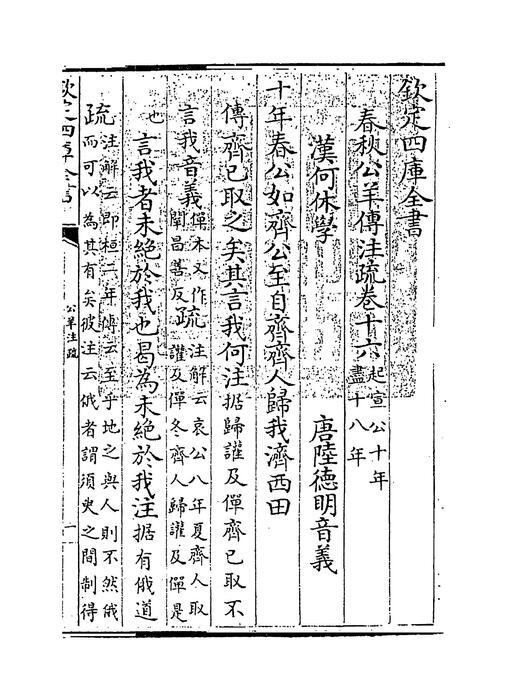 欽定四庫全書
春秋公羊傳注疏卷十六起宣公十年盡十八年
漢何休學　唐陸德明音義
十年春公如齊公至自齊齊人歸我濟西田
傳齊已取之矣其言我何注据歸讙及僤齊已取不
言我音義僤本又作闡昌善反疏注解云哀公八年夏齊人取讙及僤冬齊人歸讙及僤是
也言我者未絕於我也曷為未絕於我注据有俄道
疏注解云即桓二年傳云至乎地之與人則不然俄而可以為其有矣彼注云俄者謂須臾之間制得
欽定四庫全書
公羊注疏
一